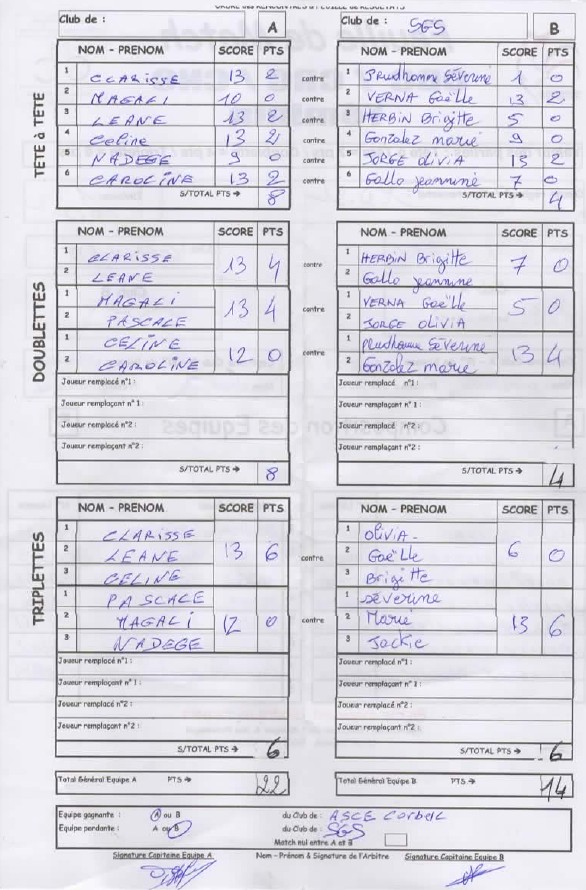 ORDRE des RENCONTRES & FEUILLE de RESULTATS
Club de : A Club de : SGS B
TETE à TETE
NOM - PRENOM SCORE PTS NOM - PRENOM SCORE PTS
1 CLARISSE 13 2 contre 1 Prudhomme Séverine 1 0
2 MAGALI 10 0 2 VERNA Gaëlle 13 2
3 LEANE 13 2 contre 3 HERBIN Brigitte 5 0
4 Celine 13 2 4 Gonzalez marie 9 0
5 NADEGE 9 0 contre 5 JORGE oLiviA 13 2
6 CAROLINE 13 2 contre 6 Gallo jeannine 7 0
S/TOTAL PTS → 8 S/TOTAL PTS → 4
DOUBLETTES
NOM - PRENOM SCORE PTS NOM - PRENOM SCORE PTS
1 CLARISSE 13 4 contre 1 HERBIN Brigitte 7 0
2 LEANE 2 Gallo jeannine
1 MAGALI 13 4 contre 1 VERNA Gaëlle 5 0
2 PASCALE 2 JORGE oLiviA
1 CELINE 12 0 contre 1 Prudhomme Séverine 13 4
2 CAROLINE 2 Gonzalez marie
Joueur remplacé n°1: Joueur remplacé n°1:
Joueur remplaçant n°1: Joueur remplaçant n°1:
Joueur remplacé n°2: Joueur remplacé n°2:
Joueur remplaçant n°2: Joueur remplaçant n°2:
S/TOTAL PTS → 8 S/TOTAL PTS → 4
TRIPLETTES
NOM - PRENOM SCORE PTS NOM - PRENOM SCORE PTS
1 CLARISSE 1 oLiviA-
2 LEANE 13 6 contre 2 Gaëlle 6 0
3 CELINE 3 Brigitte
1 PASCALE 1 Séverine
2 MAGALI 12 0 contre 2 Marie 13 6
3 NADEGE 3 Jackie
Joueur remplacé n°1: Joueur remplacé n°1:
Joueur remplaçant n°1: Joueur remplaçant n°1:
Joueur remplacé n°2: Joueur remplacé n°2:
Joueur remplaçant n°2: Joueur remplaçant n°2:
S/TOTAL PTS → 6 S/TOTAL PTS → 6
Total Général Equipe A PTS → 22 Total Général Equipe B PTS → 14
Equipe gagnante : A ou B du Club de : ASCE Corbeil
Equipe perdante : A ou B du Club de : SGS
Match nul entre A et B
Signature Capitaine Equipe A Nom - Prénom & Signature de l'Arbitre Signature Capitaine Equipe B